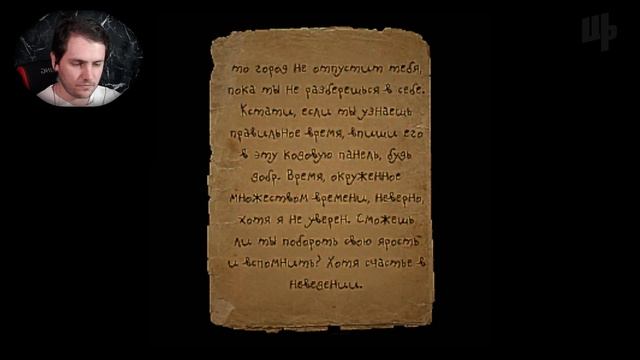 то город не отпустит тебя,
пока ты не разберешься в себе.
Кстати, если ты узнаешь
правильное время, впиши его
в эту кодовую панель, будь
добр. Время, окруженное
множеством времени, неверно,
хотя я не уверен. Сможешь
ли ты побороть свою ярость
и вспомнить? Хотя счастье в
неведении.